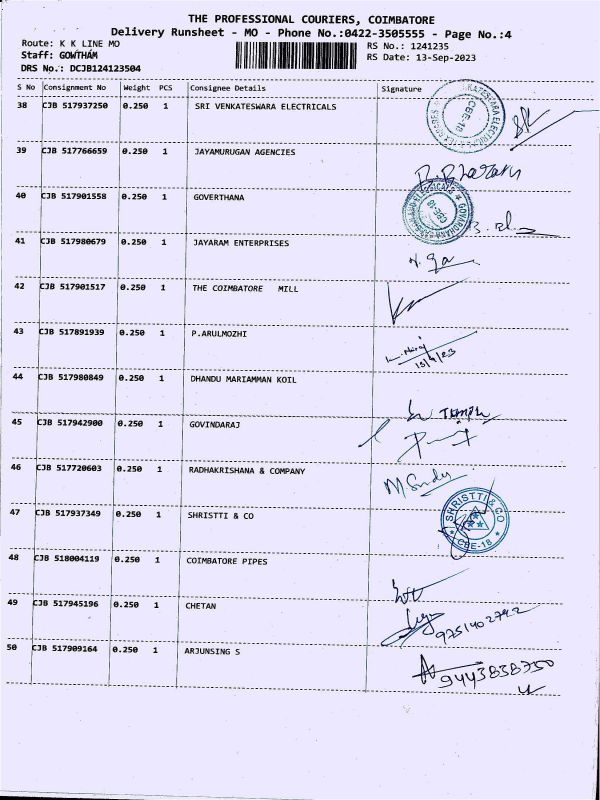 THE PROFESSIONAL COURIERS, COIMBATORE
Delivery Runsheet - MO - Phone No.:0422-3505555 - Page No.:4
Route: K K LINE MO
RS No.: 1241235
Staff: GOWTHAM
RS Date: 13-Sep-2023
DRS No.: DCJB124123504
S No Consignment No Weight PCS Consignee Details Signature
38 CJB 517937250 0.250 1 SRI VENKATESWARA ELECTRICALS
CBE-18
39 CJB 517766659 0.250 1 JAYAMURUGAN AGENCIES
40 CJB 517901558 0.250 1 GOVERTHANA
CBE-18
41 CJB 517980679 0.250 1 JAYARAM ENTERPRISES
42 CJB 517901517 0.250 1 THE COIMBATORE MILL
43 CJB 517891939 0.250 1 P.ARULMOZHI
13/9/23
44 CJB 517980849 0.250 1 DHANDU MARIAMMAN KOIL
45 CJB 517942900 0.250 1 GOVINDARAJ
46 CJB 517720603 0.250 1 RADHAKRISHANA & COMPANY
47 CJB 517937349 0.250 1 SHRISTTI & CO
SHRISTTI & CO
CBE-18
48 CJB 518004119 0.250 1 COIMBATORE PIPES
49 CJB 517945196 0.250 1 CHETAN
9751402742
50 CJB 517909164 0.250 1 ARJUNSING S
9443838750